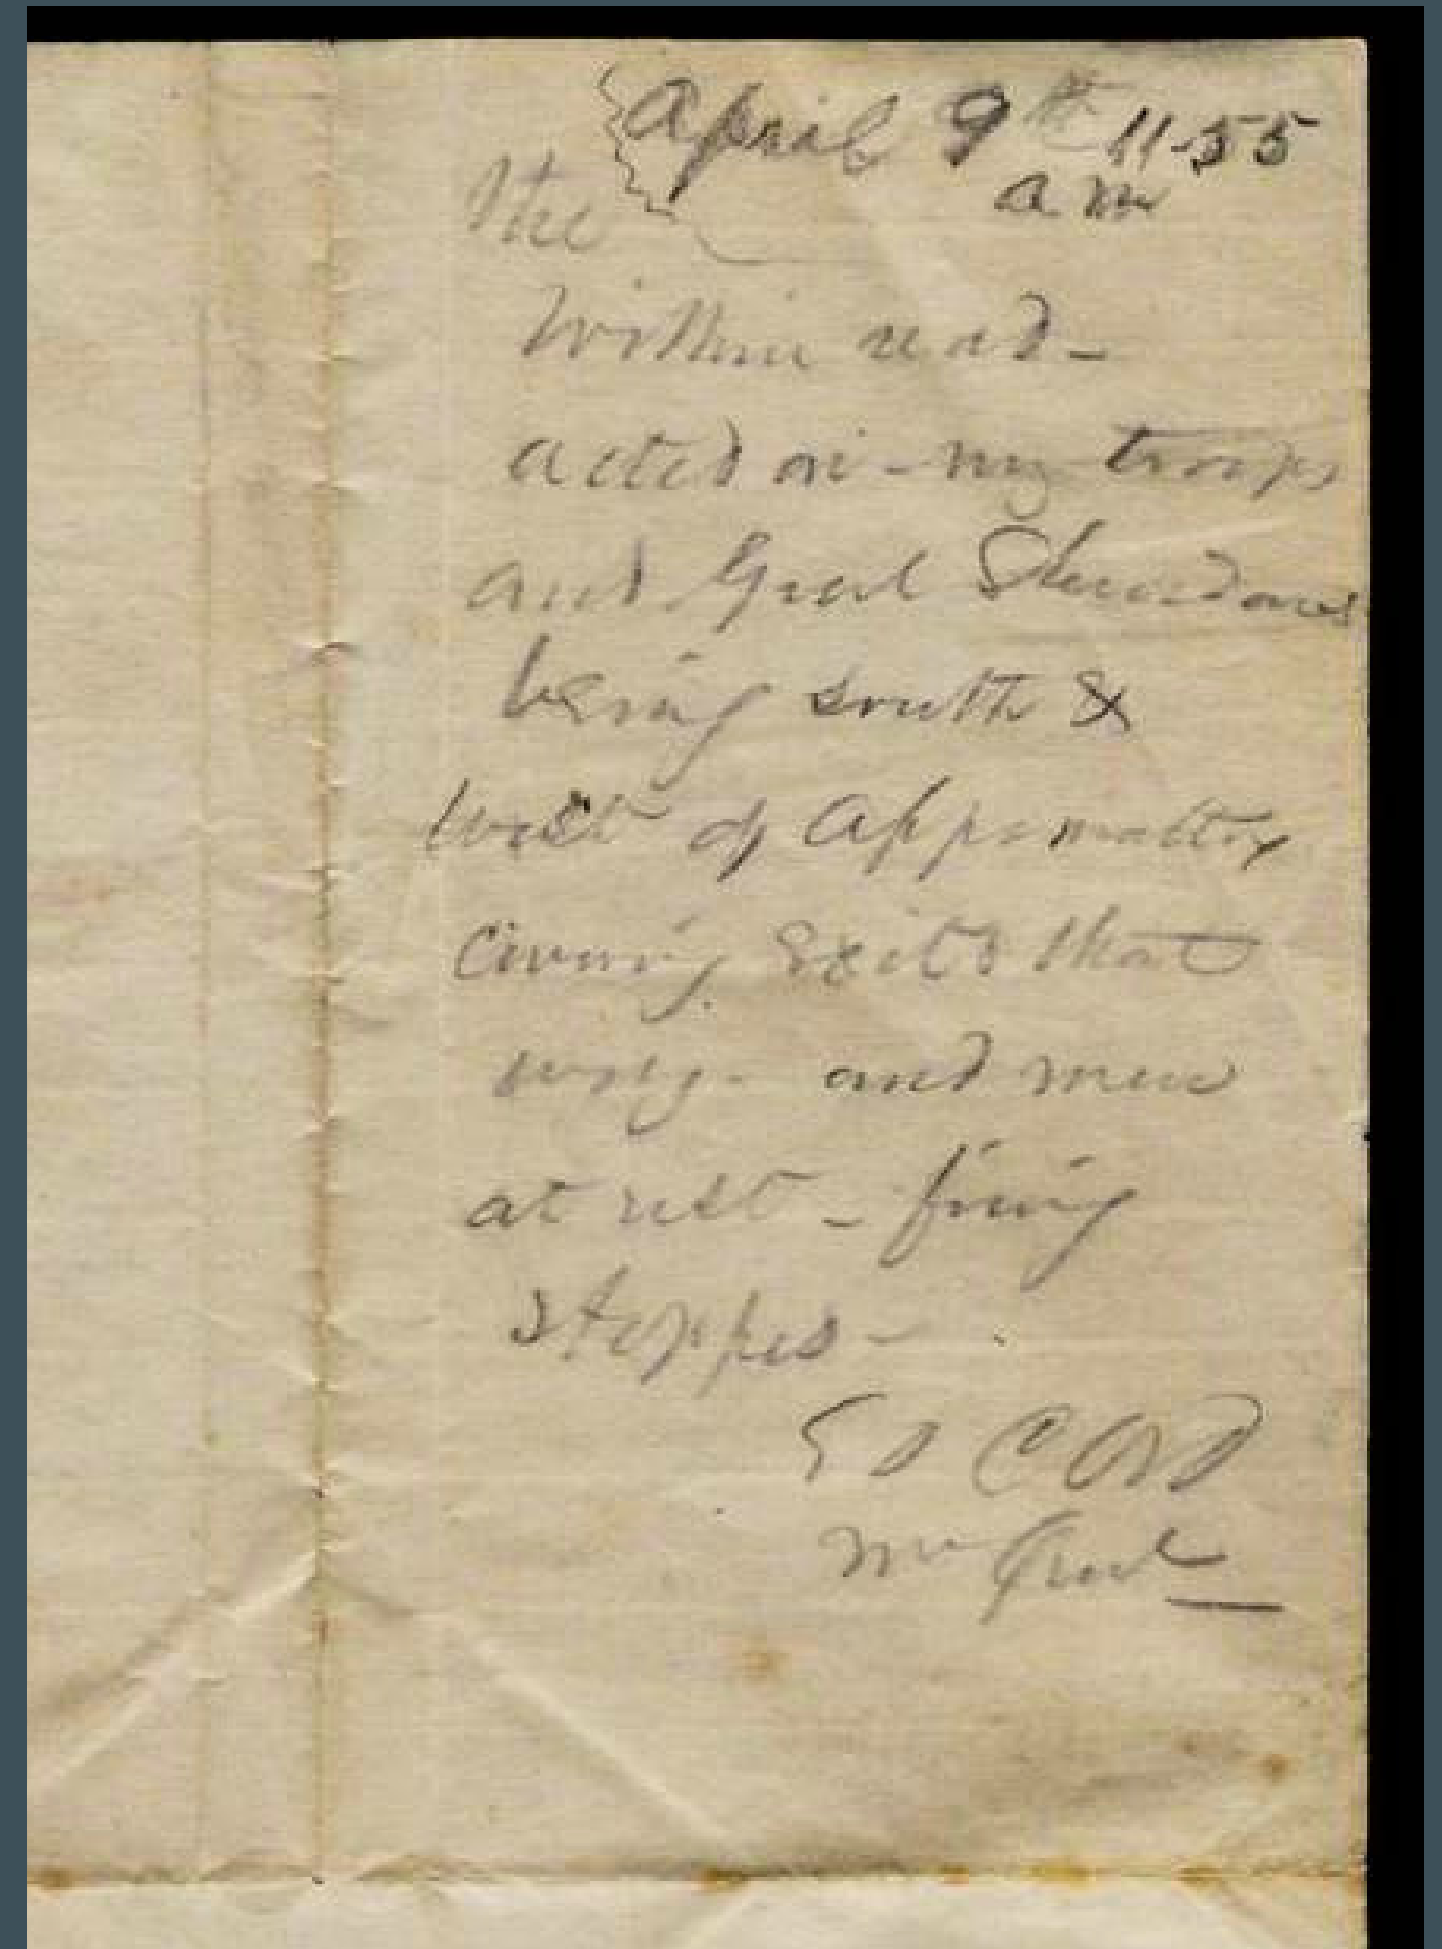 April 9th 11-55
a m
The
Within read -
acted on - my troops
and Genl Sheridans
being south &
West of Appomattox
Covering Exits that
way - and men
at rest - firing
stopped -
E O C Ord
M Genl